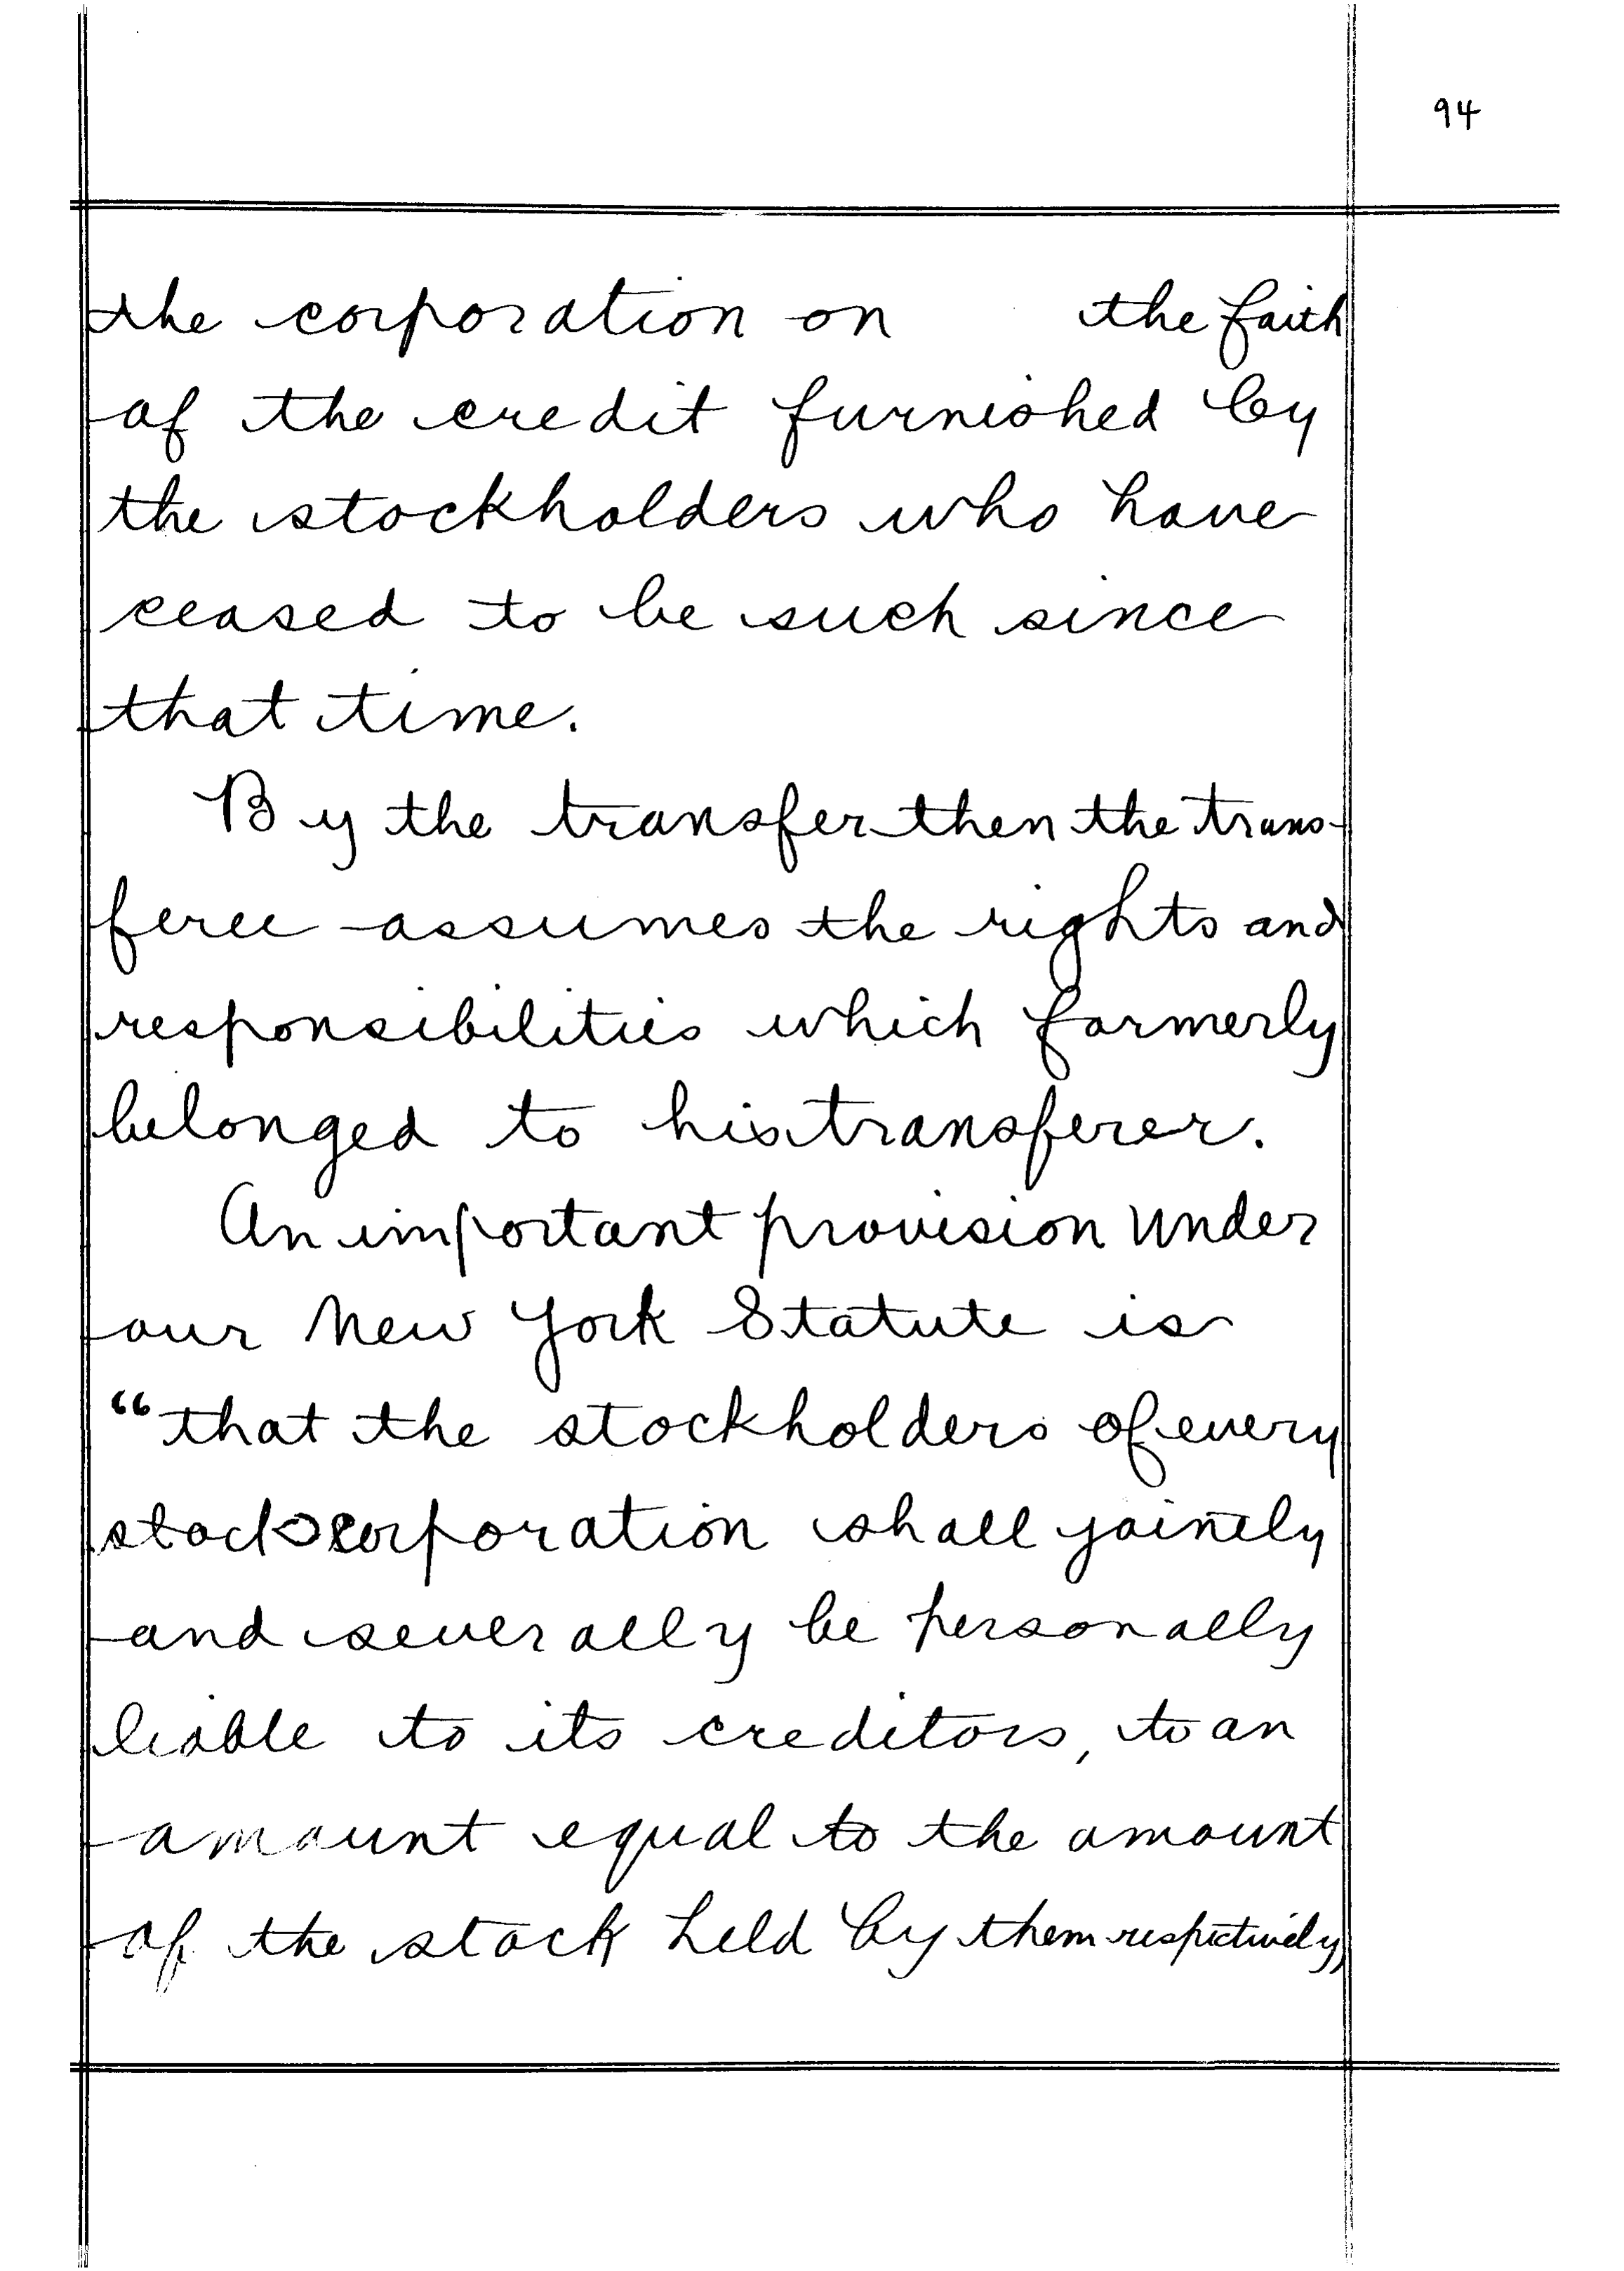 94
the corporation on the faith
of the credit furnished by
the stockholders who have
ceased to be such since
that time.
By the transfer then the trans-
feree assumes the rights and
responsibilities which formerly
belonged to his transferer.
An important provision under
our New York Statute is
"that the stockholders of every
stock corporation shall jointly
and severally be personally
liable to its creditors, to an
amount equal to the amount
of the stock held by them respectively,